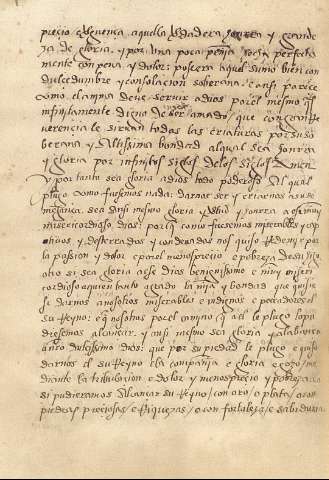 precio e verguença aquella verdadera honrra y grande
za de gloria. y por una poca pena posea perfecta
mente con pena y dolor: poseera aquel sumo bien con
dulcedumbre y consolacion soberana. e ansi parece
como el anima deve servir a dios por el mesmo q
infinitamente digno de ser amado / que con gran Re
verencia le sirvan todas las criaturas por su so
berana y altissima bondad al qual sea honrra
y gloria por infinitos siglos de los siglos Amen
y por tanto sea gloria a dios todo poderoso al qual
plugo como fuesemos nada: darnos ser y criarnos a su se
mejança. sea dessi mesmo gloria y honrra a este
misericordioso dios: por q como fuesemos miserables y cap
tivos y desterrados y condenados nos quiso Redemir por
la passion y dolor e por el menosprecio e pobreza de su hijo
otro si sea gloria a este dios benignissimo e muy miseri
cordioso a quien tanto agrado la bondad que quisie
se darnos a nosotros miserables e indignos e pecadores el
su Reyno: e q nosotros por el camino q a el le plugo lo pu
diesemos alcançar. y ansi mesmo sea gloria y alabança
a nro dulcissimo dios: que por su piedad le plugo e quiso
darnos el su Reyno e la compañia e gloria e gozo / me
diante la tribulacion e dolor y menosprecio y pobreza ca
si pudieramos alcançar su Reyno / con oro / o plata / o con
piedras preciosas / e Riquezas / o con fortaleza / e sabiduria